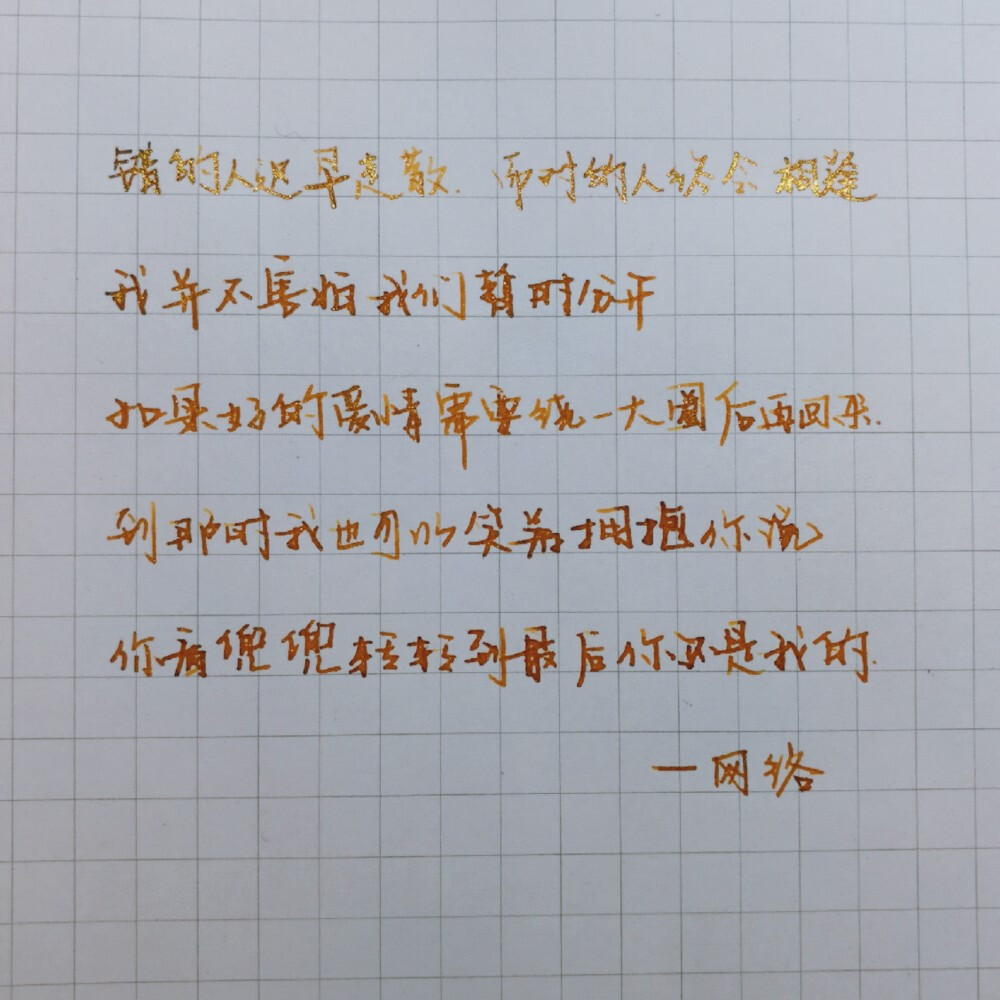 错的人迟早走散.而对的人终会相逢
我并不害怕我们暂时分开
如果好的爱情需要绕一大圈后再回来.
到那时我也可以笑着拥抱你说
你看兜兜转转到最后你还是我的.
一网络